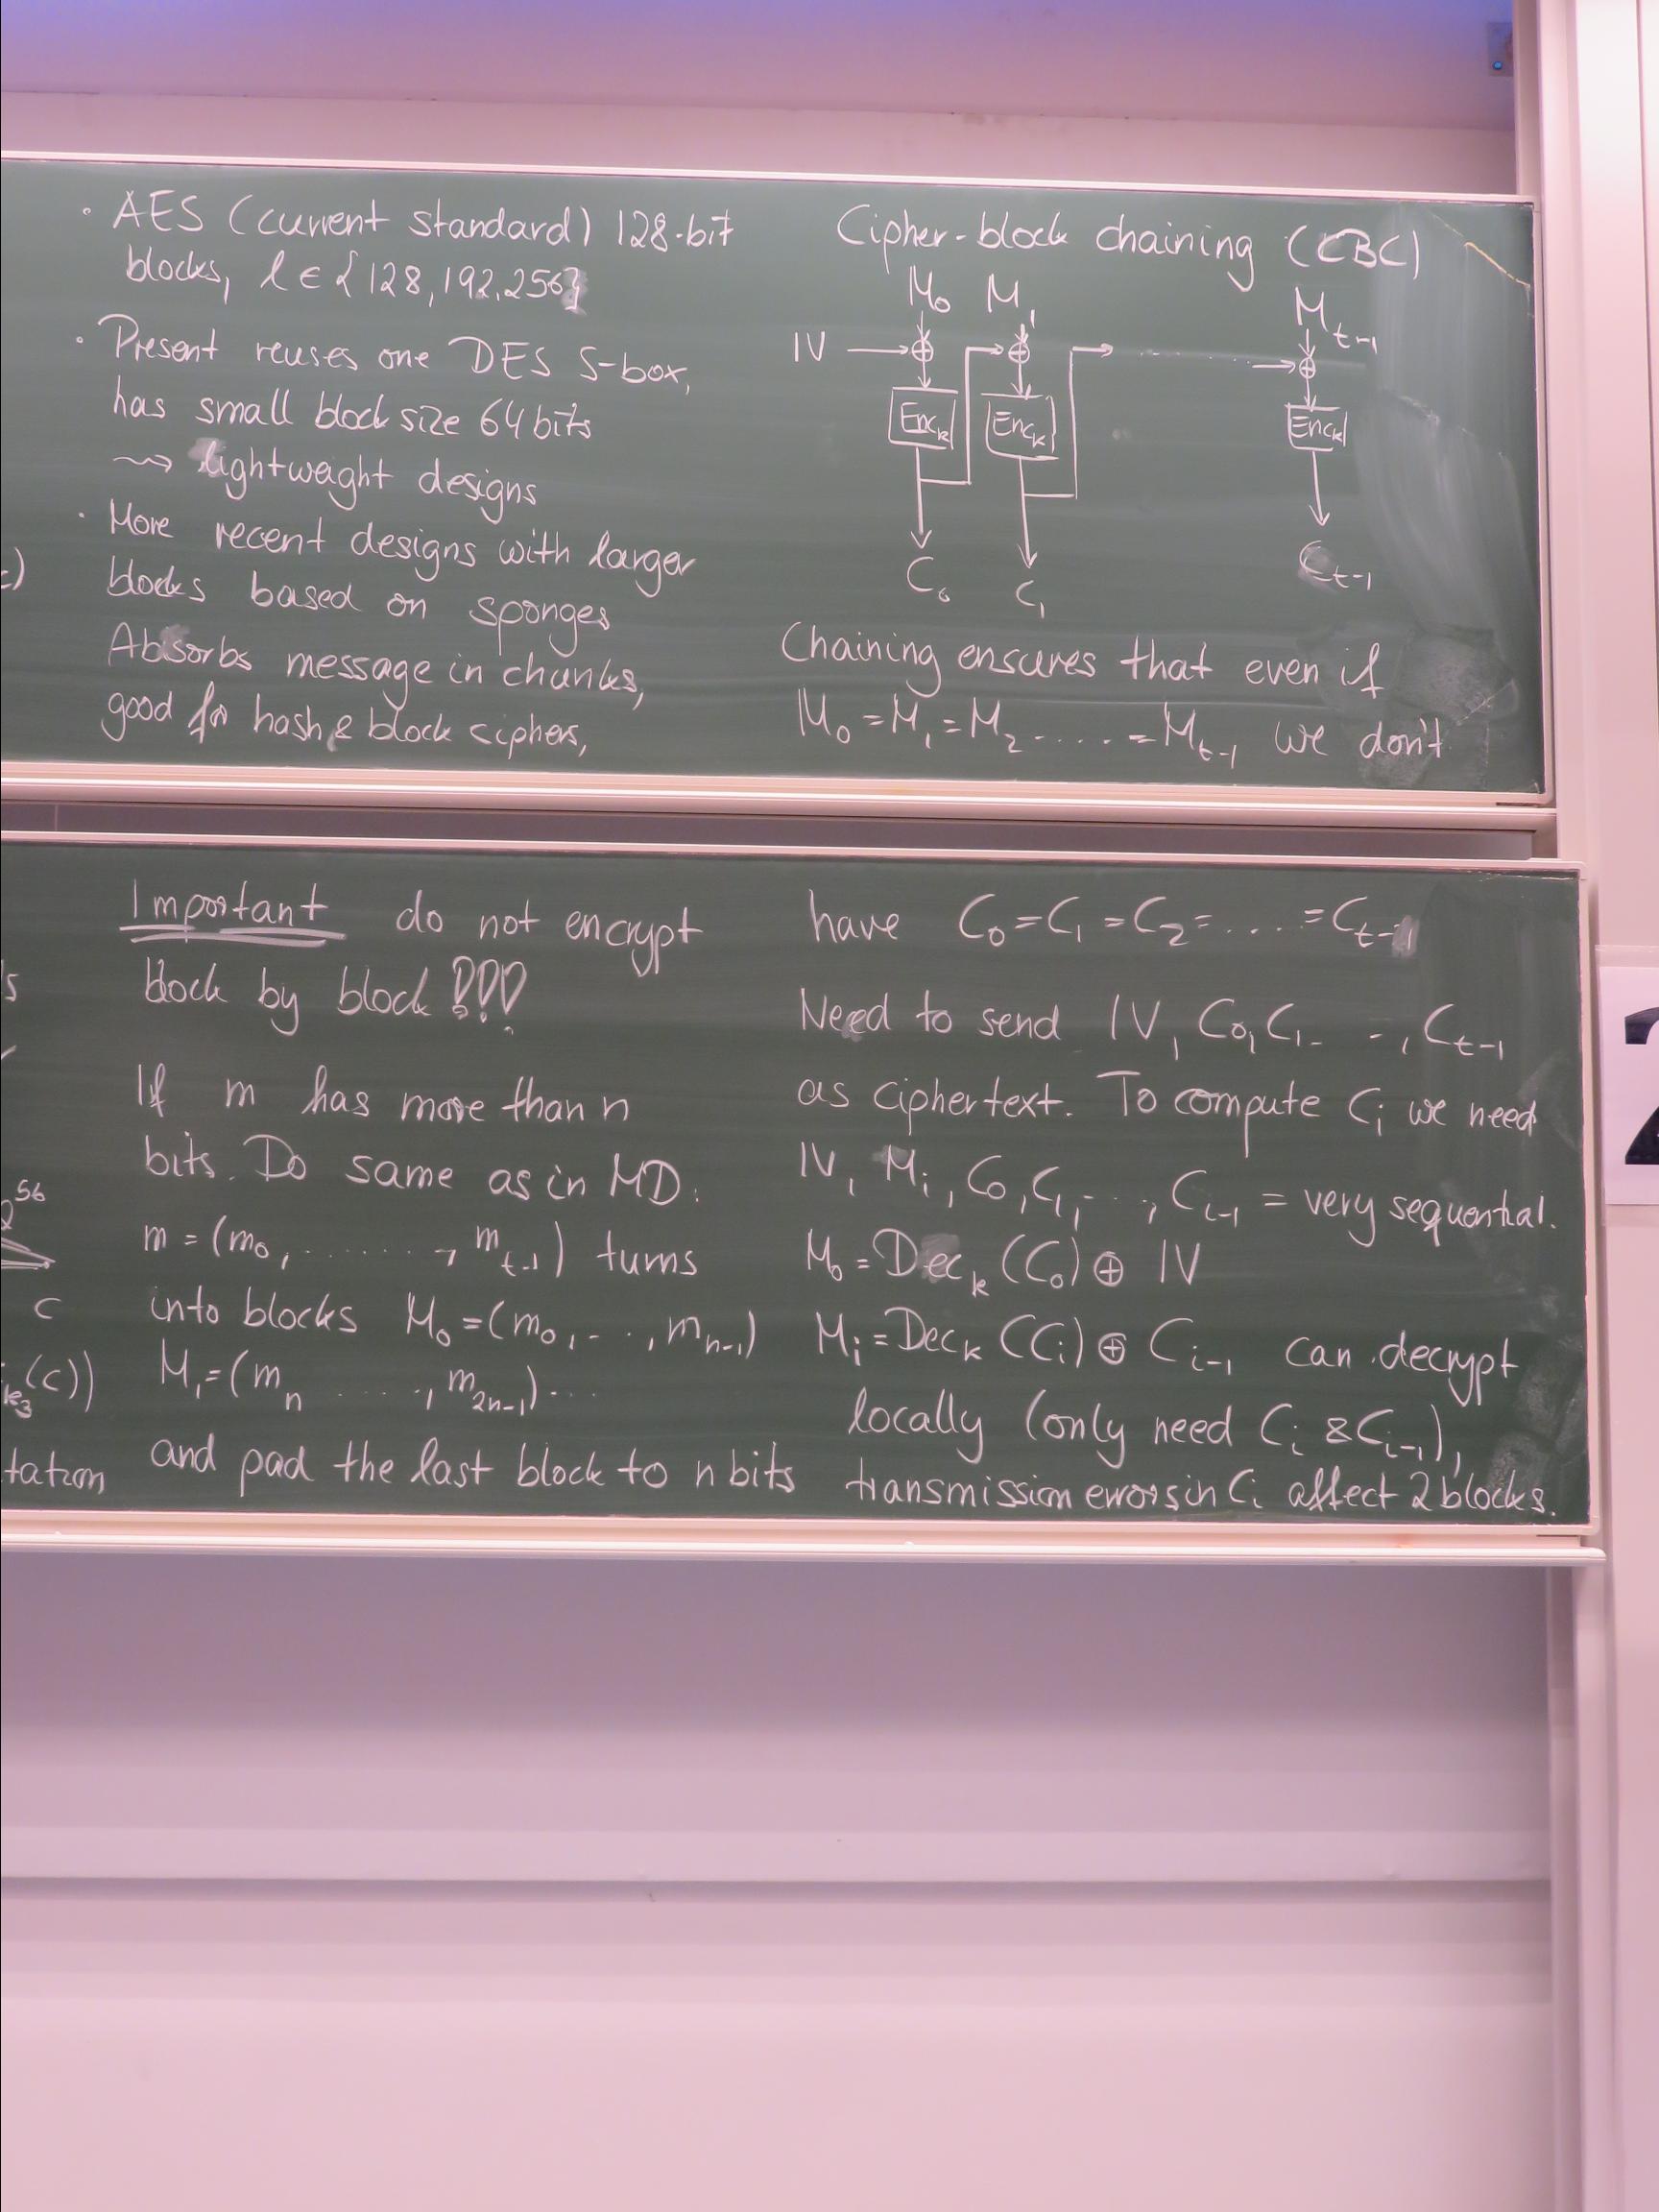 · AES (current standard) 128-bit
blocks, l ∈ {128,192,256}
· Present reuses one DES S-box,
has small block size 64 bits
⇝ lightweight designs
· More recent designs with larger
blocks based on sponges
Absorbs message in chunks,
good for hash & block ciphers,
Cipher-block chaining (CBC)
M₀ M₁ M_{t-1}
IV → ⊕ → ⊕ → ..... → ⊕
Enc_k Enc_k Enc_k
C₀ C₁ C_{t-1}
Chaining ensures that even if
M₀ = M₁ = M₂ ..... = M_{t-1} we don't
c)
Important do not encrypt
block by block !!!
If m has more than n
bits. Do same as in MD:
m = (m₀, ......, m_{t-1}) turns
into blocks M₀ = (m₀, .. , m_{n-1})
M₁ = (m_n ....., m_{2n-1}) ...
and pad the last block to n bits
have C₀ = C₁ = C₂ = .... = C_{t-1}
Need to send IV, C₀, C₁ - -, C_{t-1}
as ciphertext. To compute C_i we need
IV, M_i, C₀, C₁, - - , C_{i-1} = very sequential.
M₀ = Dec_k (C₀) ⊕ IV
M_i = Dec_k (C_i) ⊕ C_{i-1} can decrypt
locally (only need C_i & C_{i-1}),
transmission errors in C_i affect 2 blocks.
s
56
c
k₃(c))
tation
2